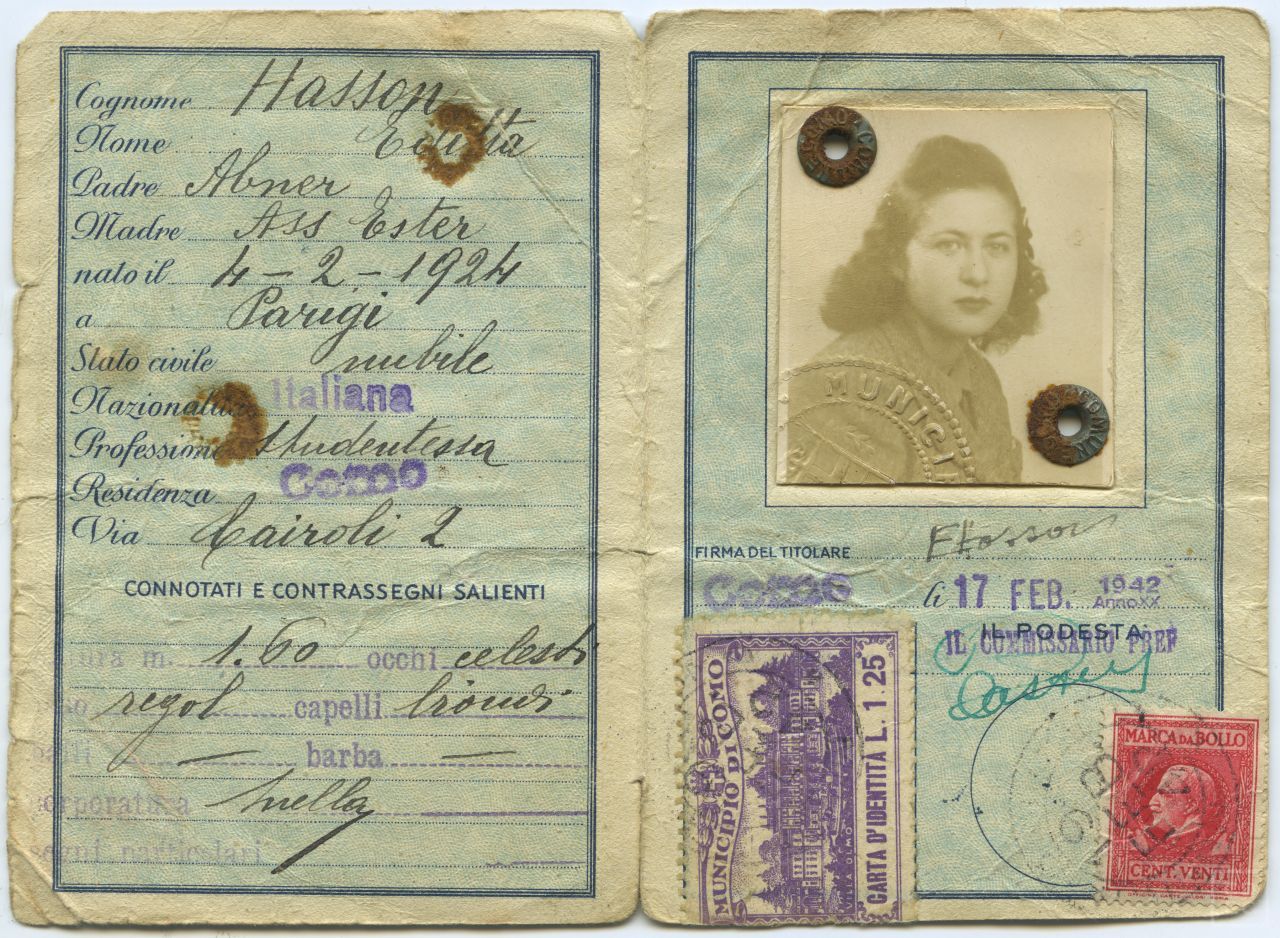 Cognome Hasson
Nome Editta
Padre Abner
Madre Ass Ester
nato il 4 - 2 - 1924
a Parigi
Stato civile nubile
Nazionalità Italiana
Professione Studentessa
Residenza Como
Via Cairoli 2
CONNOTATI E CONTRASSEGNI SALIENTI
m. 1.60 occhi celesti
regol capelli biondi
— barba —
corporatura snella
segni particolari —
MUNICI
COMUN
FIRMA DEL TITOLARE EHasson
Como li 17 FEB. 1942
Anno XX
IL PODESTA:
IL COMMISSARIO PREF
MUNICIPIO DI COMO
VILLA OLMO
CARTA D'IDENTITÀ L. 1.25
MARCA DA BOLLO
CENT. VENTI